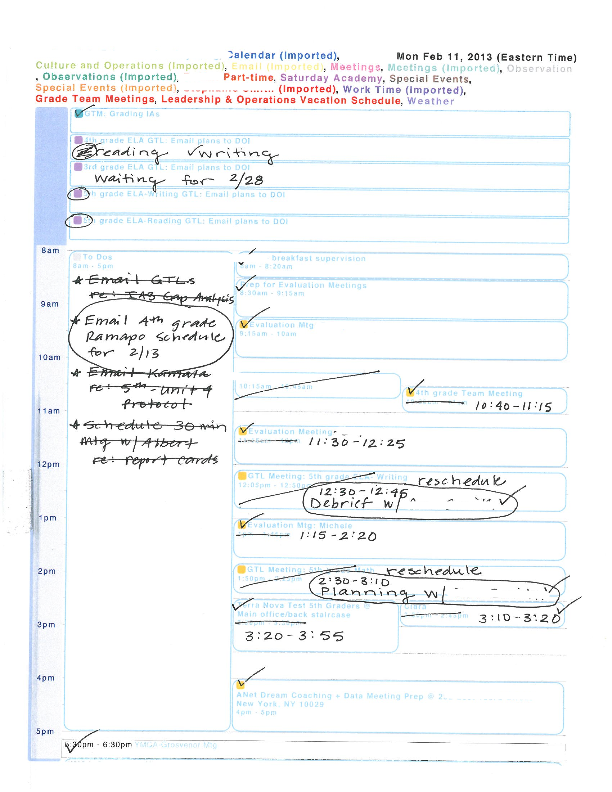 Calendar (Imported), Mon Feb 11, 2013 (Eastern Time)
Culture and Operations (Imported), Email (Imported), Meetings, Meetings (Imported), Observation
, Observations (Imported), Part-time, Saturday Academy, Special Events,
Special Events (Imported), (Imported), Work Time (Imported),
Grade Team Meetings, Leadership & Operations Vacation Schedule, Weather
GTM: Grading IAs
4th grade ELA GTL: Email plans to DOI
reading ✓writing
3rd grade ELA GTL: Email plans to DOI
waiting for 2/28
th grade ELA-Writing GTL: Email plans to DOI
grade ELA-Reading GTL: Email plans to DOI
8am
To Dos
8am - 5pm
★ Email GTLs
re: IA3 Gap Analysis
★ Email 4th grade
Ramapo schedule
for 2/13
★ Email Kamala
re: 5th - Unit 4
Protocol
★ Schedule 30 min
Mtg w/ Albert
re: report cards
breakfast supervision
8am - 8:20am
Prep for Evaluation Meetings
8:30am - 9:15am
9am
Evaluation Mtg
9:15am - 10am
10am
10:15am
4th grade Team Meeting
10:40-11:15
11am
Evaluation Meeting
11:30-12:25
12pm
GTL Meeting: 5th grade ELA- Writing reschedule
12:05pm
12:30-12:45
Debrief w/
1pm
Evaluation Mtg: Michele
1:15-2:20
2pm
GTL Meeting: 5th reschedule
1:50pm
2:30-3:10
Planning w/
Terra Nova Test 5th Graders @
Main office/back staircase
3:20-3:55
Clara
3:10-3:20
3pm
4pm
ANet Dream Coaching + Data Meeting Prep @ 2
New York, NY 10029
4pm - 5pm
5pm
5:30pm - 6:30pm YMCA-Grosvenor Mtg